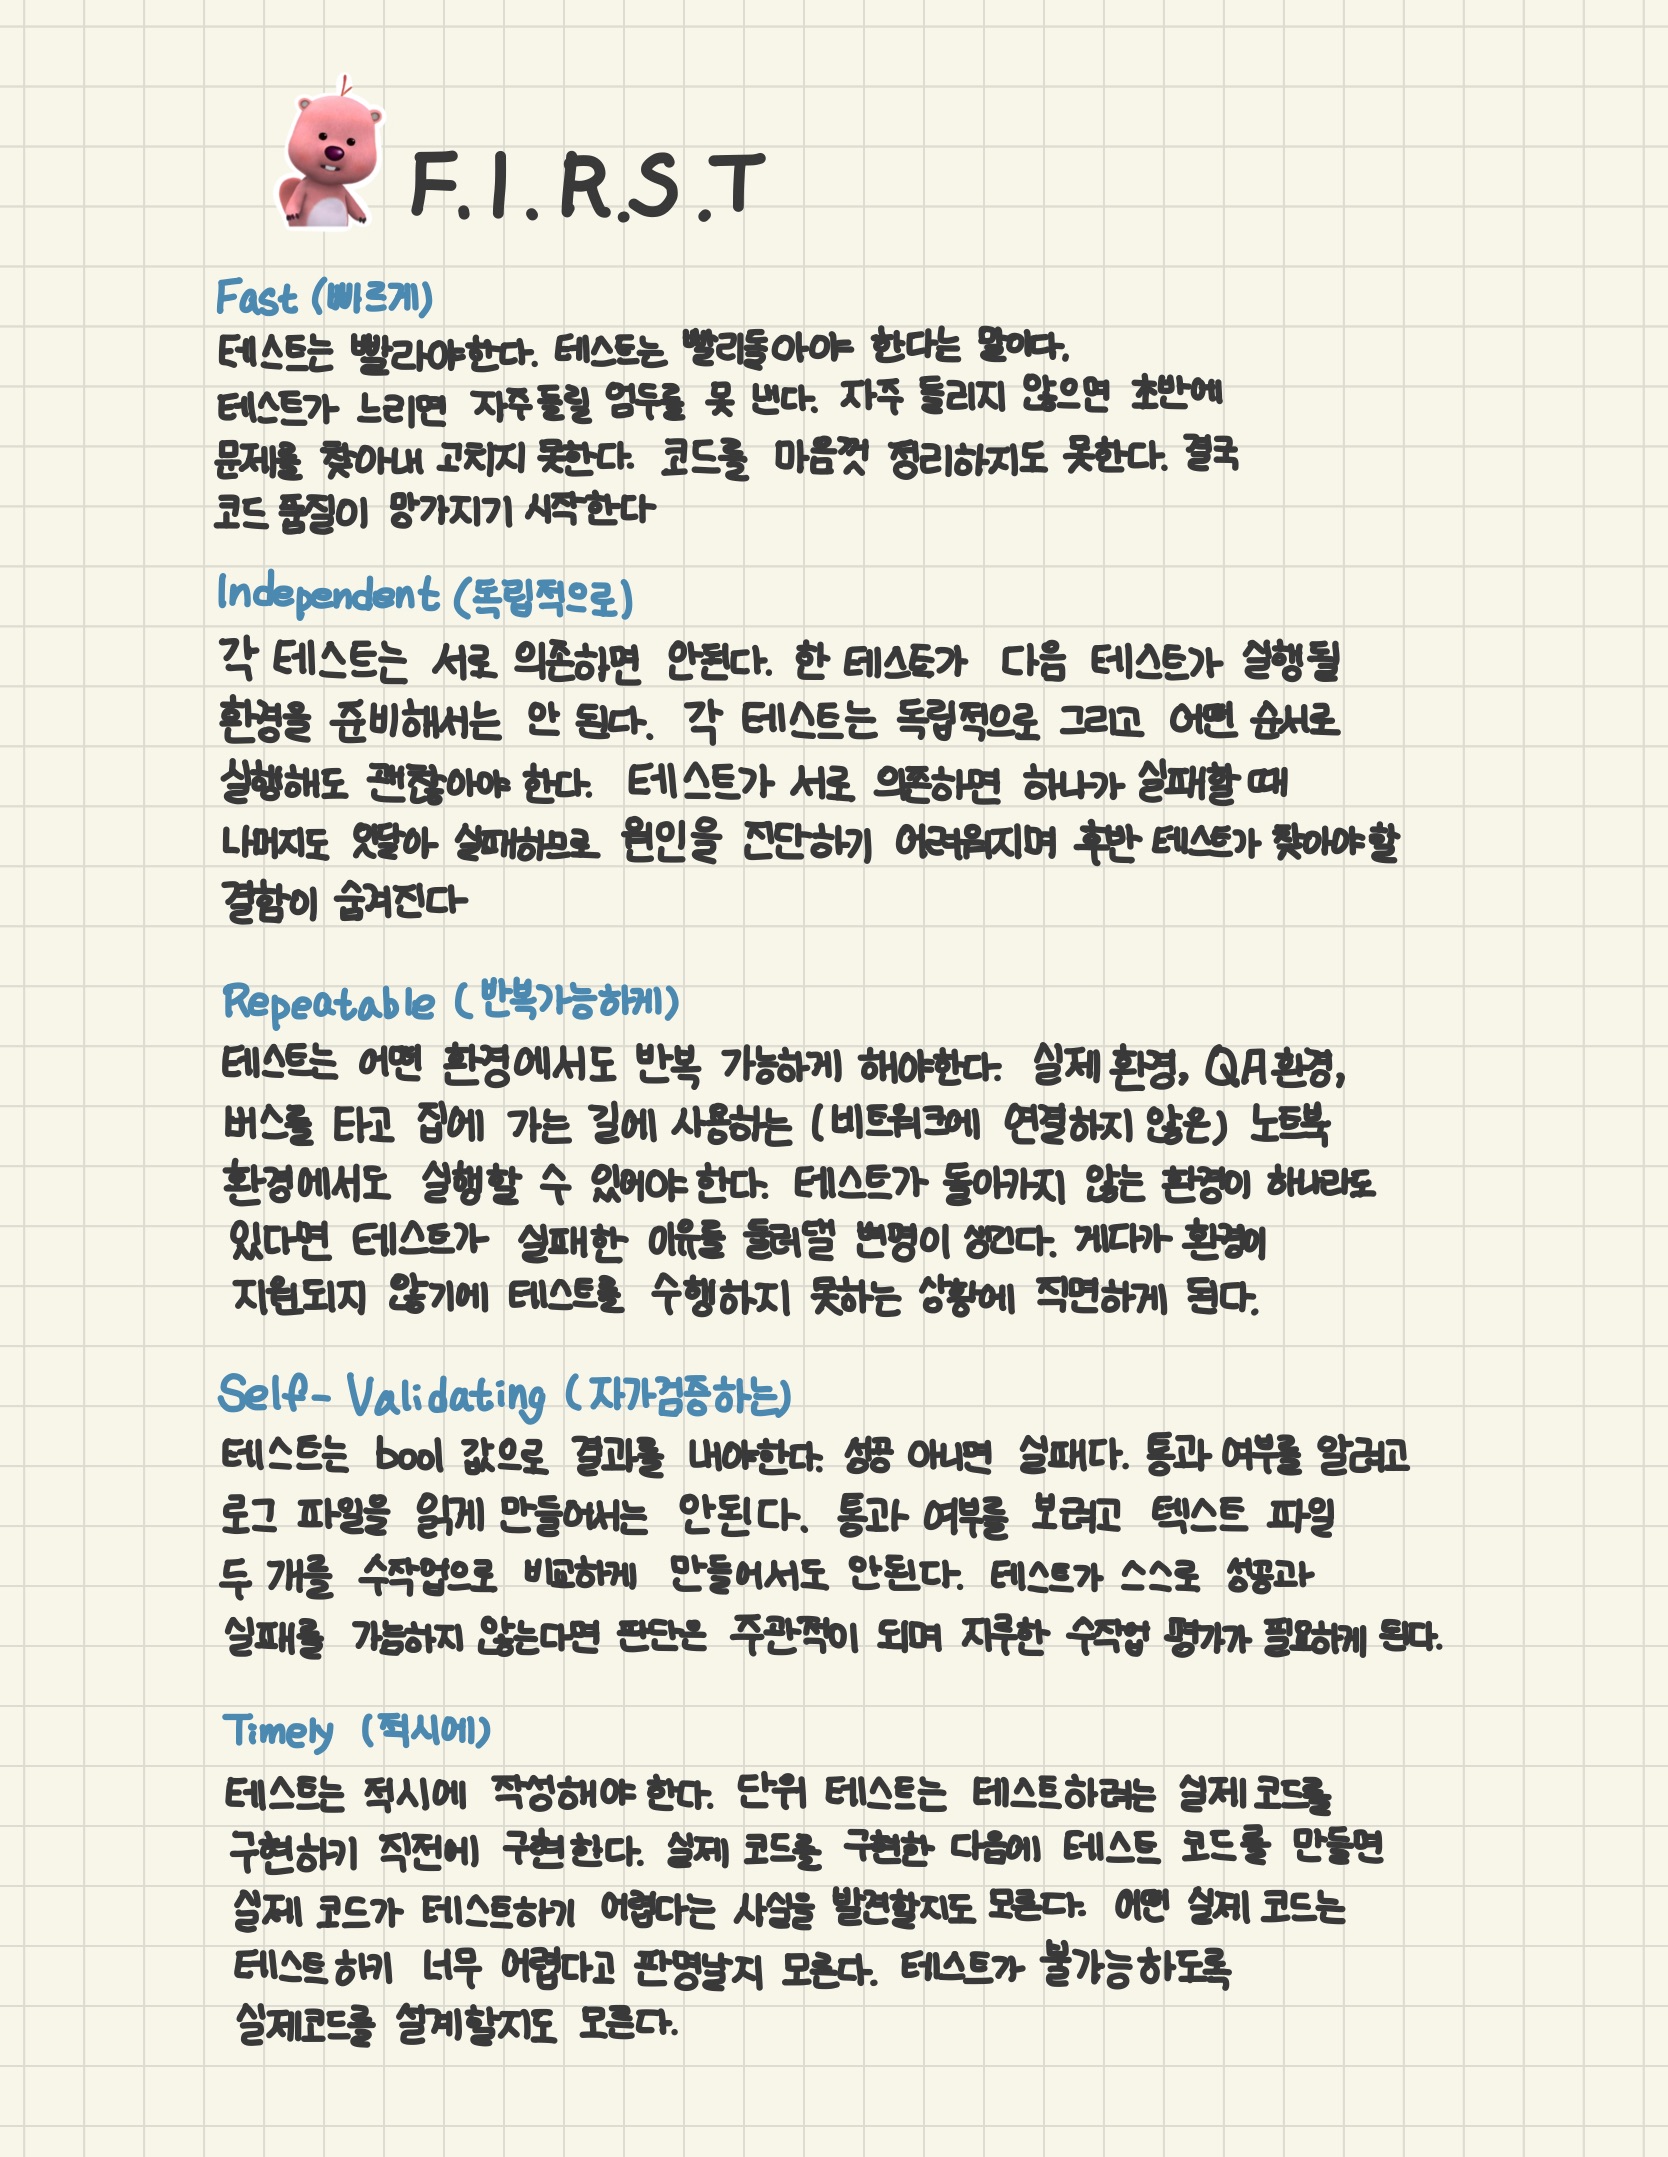 F.I.R.S.T
Fast (빠르게)
테스트는 빨라야한다. 테스트는 빨리돌아야 한다는 말이다.
테스트가 느리면 자주돌릴 엄두를 못 낸다. 자주 돌리지 않으면 초반에
문제를 찾아내 고치지 못한다. 코드를 마음껏 정리하지도 못한다. 결국
코드 품질이 망가지기 시작한다
Independent (독립적으로)
각 테스트는 서로 의존하면 안된다. 한 테스트가 다음 테스트가 실행될
환경을 준비해서는 안 된다. 각 테스트는 독립적으로 그리고 어떤 순서로
실행해도 괜찮아야 한다. 테스트가 서로 의존하면 하나가 실패할 때
나머지도 잇달아 실패하므로 원인을 진단하기 어려워지며 후반 테스트가 찾아야할
결함이 숨겨진다
Repeatable (반복가능하게)
테스트는 어떤 환경에서도 반복 가능하게 해야한다. 실제 환경, QA환경,
버스를 타고 집에 가는 길에 사용하는 (네트워크에 연결하지 않은) 노트북
환경에서도 실행할 수 있어야 한다. 테스트가 돌아가지 않는 환경이 하나라도
있다면 테스트가 실패한 이유를 둘러댈 변명이 생긴다. 게다가 환경이
지원되지 않기에 테스트를 수행하지 못하는 상황에 직면하게 된다.
Self- Validating (자가검증하는)
테스트는 bool 값으로 결과를 내야한다. 성공 아니면 실패다. 통과 여부를 알려고
로그 파일을 읽게 만들어서는 안된다. 통과 여부를 보려고 텍스트 파일
두 개를 수작업으로 비교하게 만들어서도 안된다. 테스트가 스스로 성공과
실패를 가늠하지 않는다면 판단은 주관적이 되며 지루한 수작업 평가가 필요하게 된다.
Timely (적시에)
테스트는 적시에 작성해야 한다. 단위 테스트는 테스트하려는 실제 코드를
구현하기 직전에 구현한다. 실제 코드를 구현한 다음에 테스트 코드를 만들면
실제 코드가 테스트하기 어렵다는 사실을 발견할지도 모른다. 어떤 실제 코드는
테스트하기 너무 어렵다고 판명날지 모른다. 테스트가 불가능하도록
실제코드를 설계할지도 모른다.